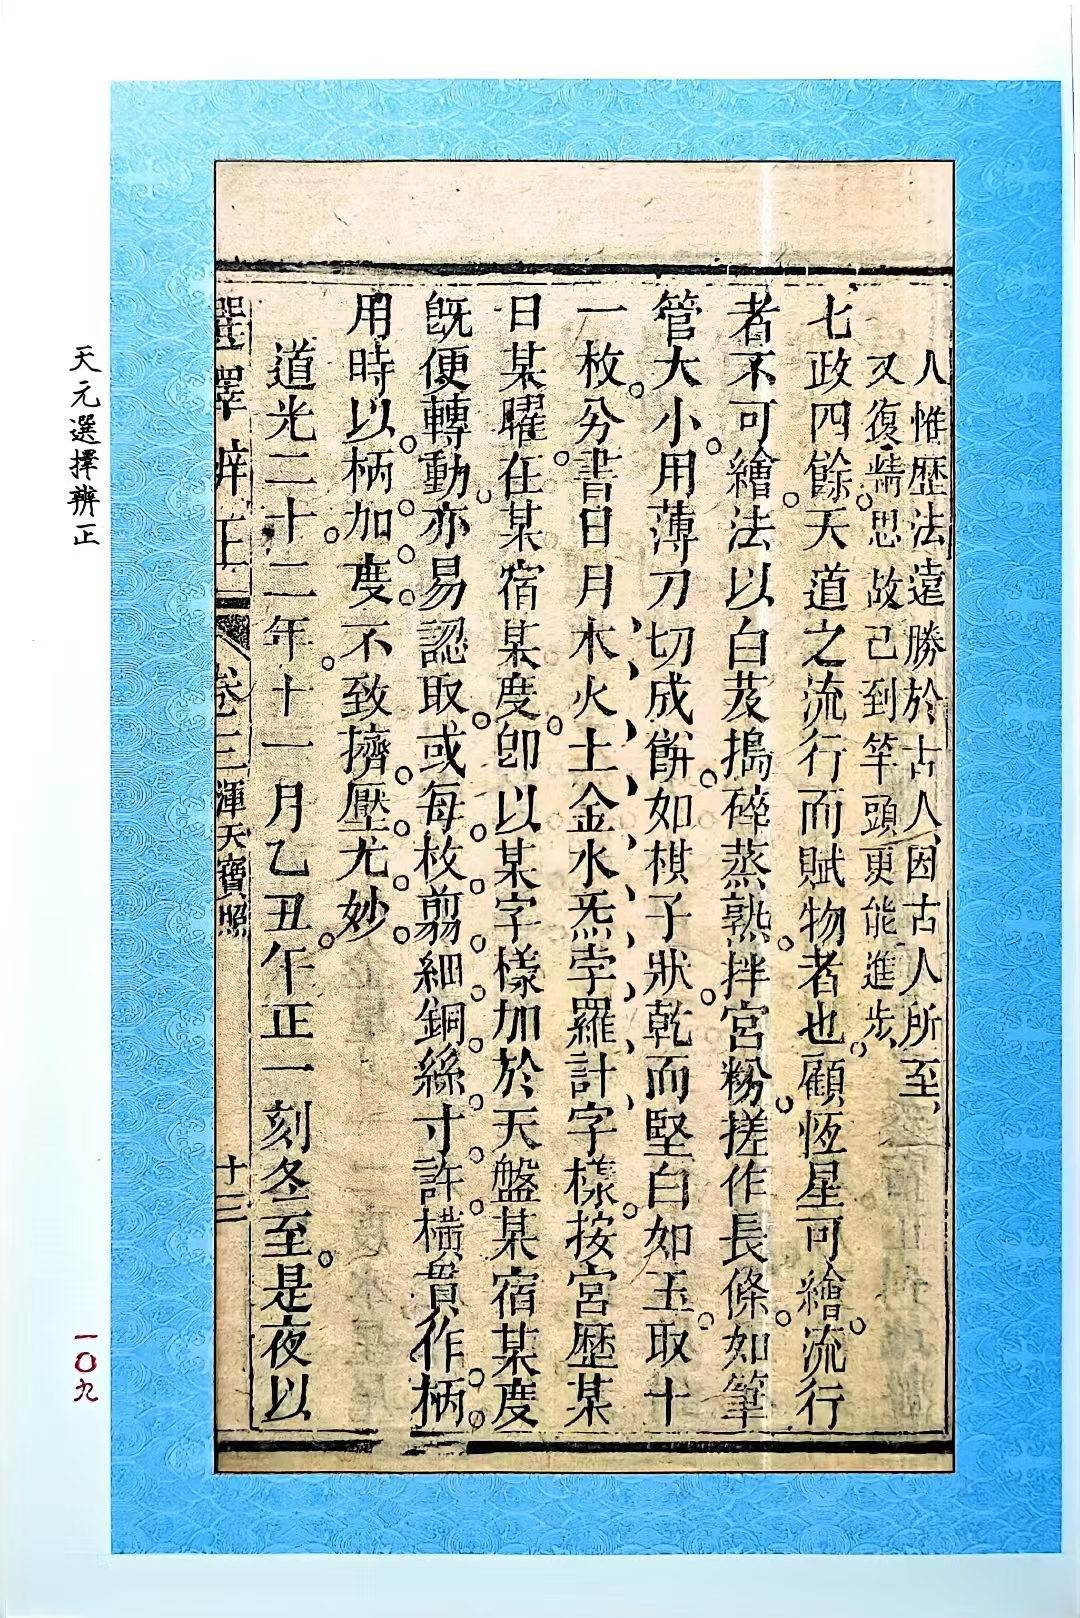 人惟歷法遠勝於古人、因古人所至、
又復精思故己到竿頭更能進步、
七政四餘。天道之流行而賦物者也。顧恆星可繪。流行
者不可繪法以白芨搗碎蒸熟。拌宮粉。搓作長條。如筆
管大小。用薄刀切成餅。如棋子狀。乾而堅白如玉。取十
一枚。分書日月木、火、土、金、水、炁、孛、羅、計、字樣。按宮歷某
日某曜。在某宿某度。卽以某字樣加於天盤某宿某度
旣便轉動。亦易認取。或每枚剪細銅絲寸許橫貫作柄。
用時以。柄加。度。不致擠壓尤妙。
道光二十二年。十一月乙丑。午正一刻冬至。是夜以
選擇辨正
卷三渾天寶照
十三
天元選擇辨正
一〇九